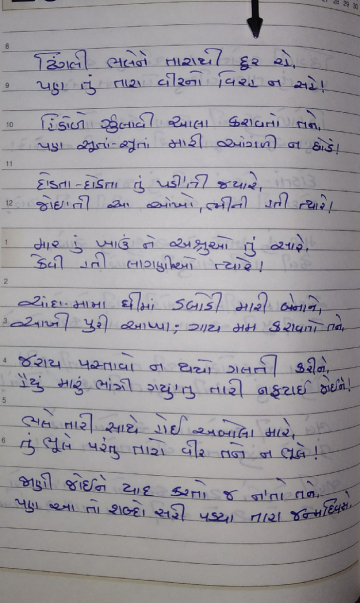 ઢીંગલી ભલેને તારાથી દૂર રો,
પણ તું તારા વીરનો વિરહ ન સહે!
હિંડોળે ઝુલાવી ચાલા કરાવતો તને,
પણ સૂતાં-સૂતાં મારી આંગળી ન છોડે!
દોડતા-દોડતા તું પડી'તી જ્યારે,
જોઈ'તી આ આંખો, ભીની હતી ત્યારે!
માર હું ખાઉં ને અશ્રુઓ તું સારે,
કેવી હતી લાગણીઓ ત્યારે!
ચાંદા-મામા ઘીમાં ડબોળી મારી બેનાને,
આખી પુરી આપા; ગાય મમ કરાવતો તને,
જરાય પસ્તાવો ન થયો ગલતી કરીને,
હૈયું મારું ભાંગી ગયું'તું તારી નફટાઈ જોઈને!
ભલે તારી સાથે હોઈ અબોલા મારે,
તું ભૂલે પરંતુ તારો વીર તને ન ભૂલે!
જાણી જોઈને યાદ કરતો જ ન'તો તને,
પણ આ તો શબ્દો સરી પડ્યા તારા જન્મદિવસે.